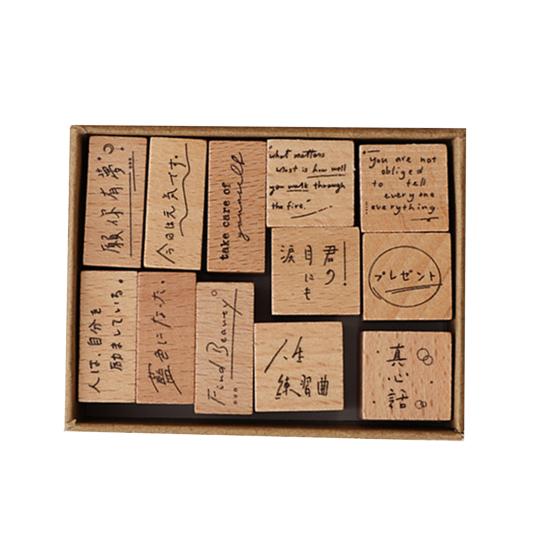 願你有夢
今日は元気です。
take care of
yourself
"what matters
most is how well
you walk through
the fire."
"you are not
obliged
to tell
everyone
everything"
君の
目にも
涙
プレゼント
人は、自分を
励ましている。
藍色になった。
Find Beauty
人生
練習曲
真
心
話